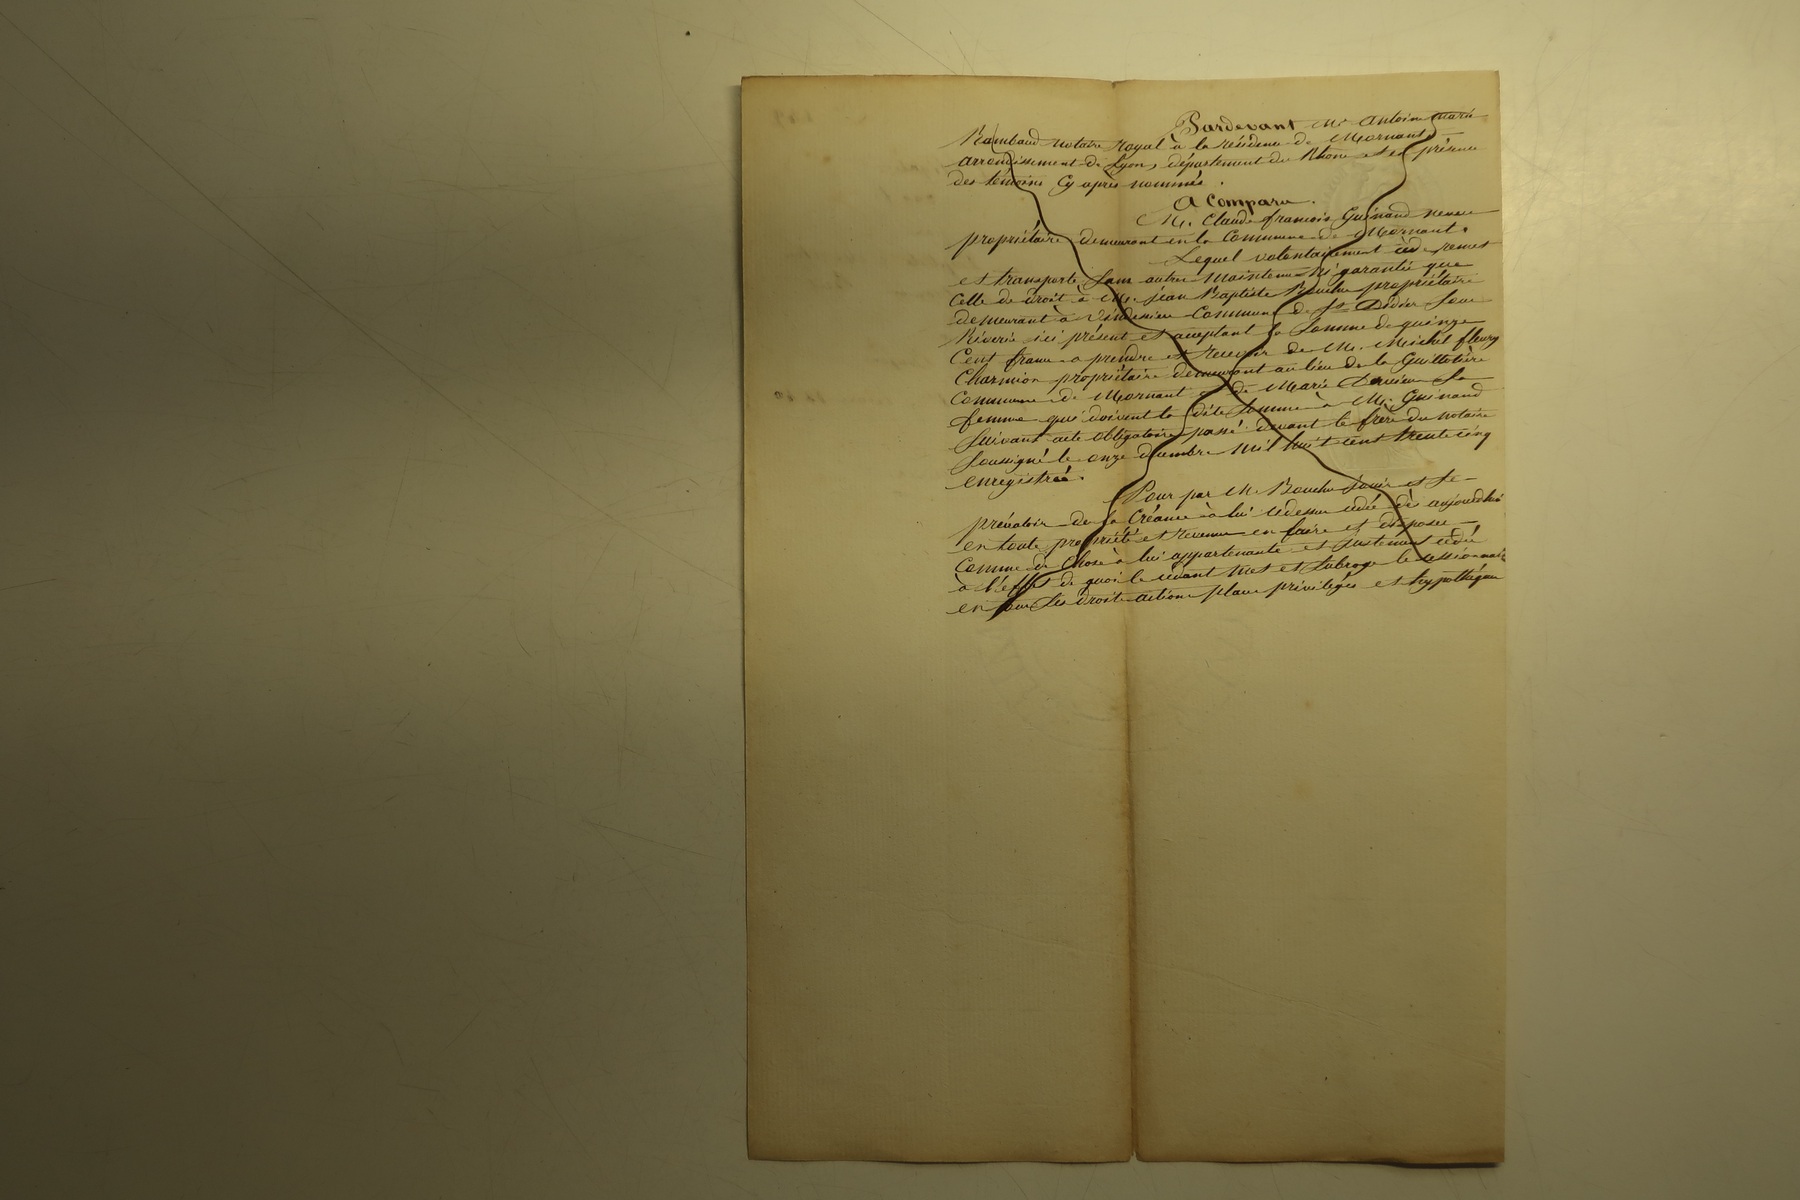 Pardevant Me Antoine marie
Rambaud notaire Royal à la résidence de Mornant
arrondissement de Lyon, département du Rhône et en présence
des témoins cy après nommés.
A Comparu.
Mr. Claude françois Guénard neveu
propriétaire demeurant en la Commune de Mornant.
Lequel volontairement cède remet
et transporte sans autre maintenue ni garantie que
Celle de droit à Mr. jean Baptiste Bouchu propriétaire
demeurant à Commune de St Didier Sous
Riverie ici présent et acceptant la Somme de quinze
Cent francs a prendre et recevoir de Mr. Michel fleury
Charmion propriétaire demeurant au lieu de la Guillotière
Commune de Mornant et de Marie Sa
femme qui doivent la dite Somme à Mr. Guénard
Suivant acte obligatoire passé devant le frère du notaire
Soussigné le onze décembre mil huit cent trente cinq
enregistrée.
Pour par Mr Bouchu jouir et Se
prévaloir de la Créance à lui cidessus cédée dès aujourdhui
en toute propriété et revenus en faire et disposer
Comme de Chose à lui appartenante et justement cédée
à l'effet de quoi le cédant met et subroge le cessionnaire
en tous Ses droits actions place privilèges et hypothèques